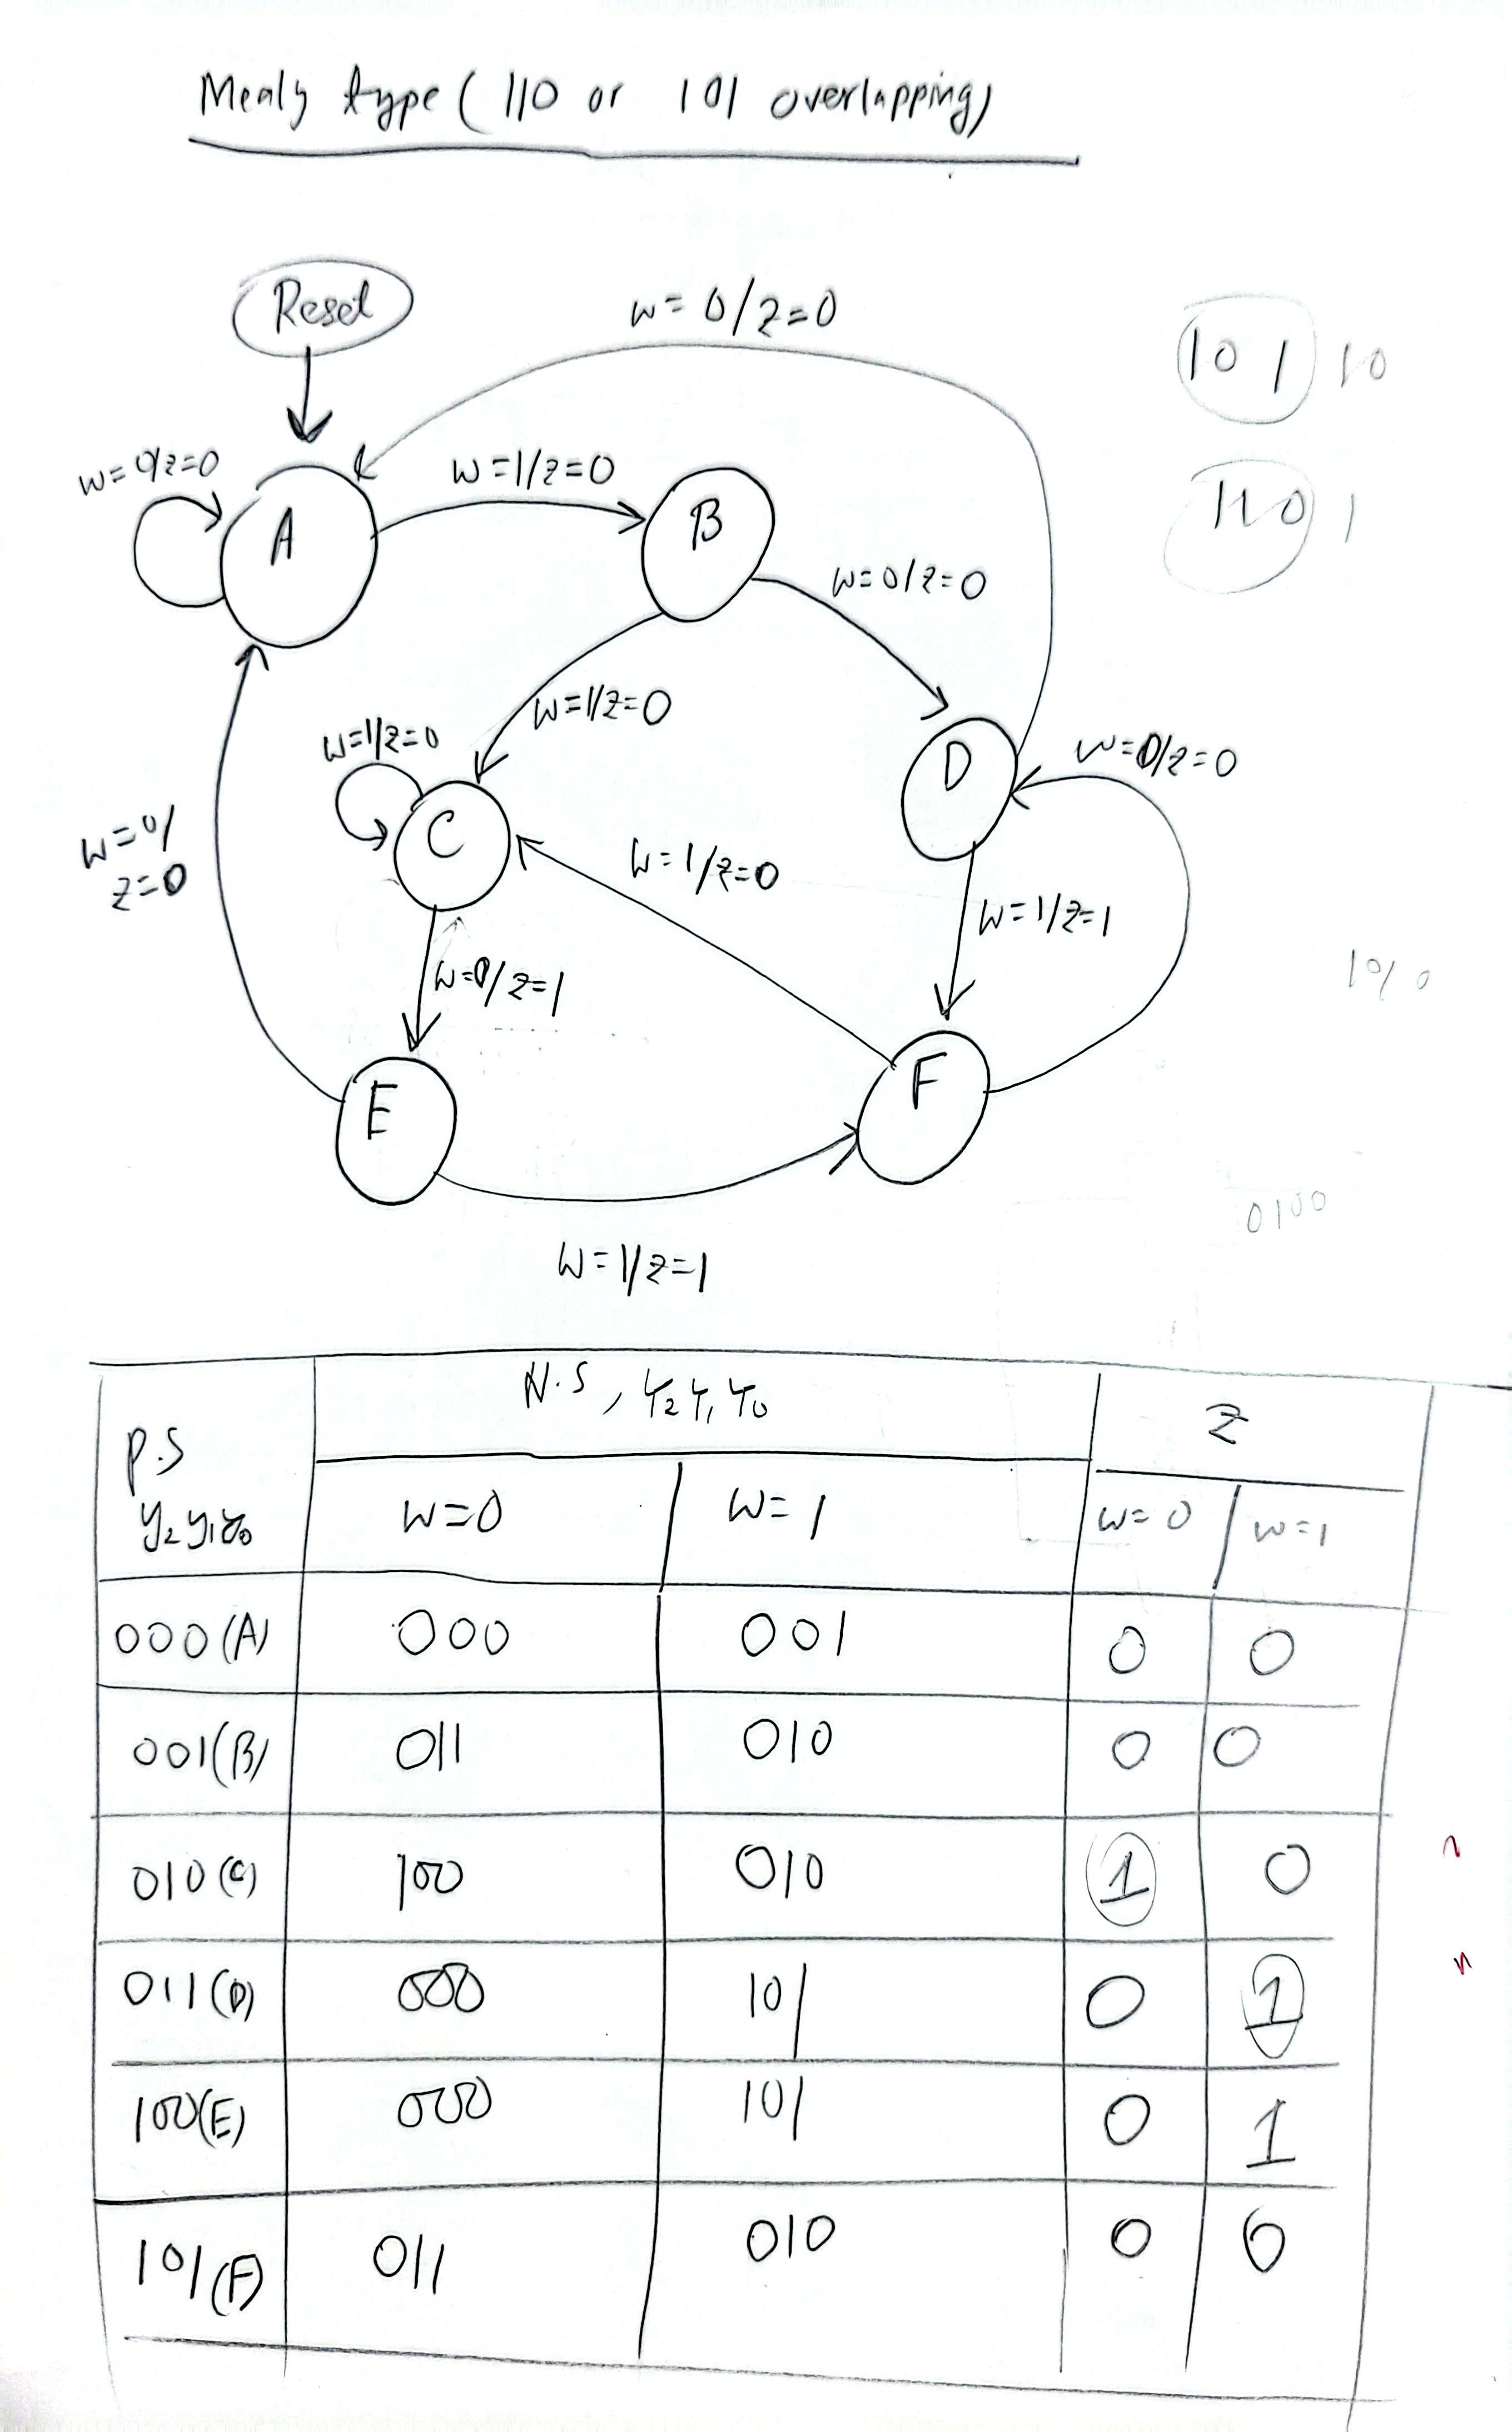 Mealy type ( 110 or 101 overlapping)
Reset
w= 0/z=0
101 10
110 1
w= 0/z=0
w=1/z=0
A
B
w=0/z=0
w=1/z=0
w=1/z=0
D
w=0/z=0
C
w=0/
z=0
w=1/z=0
w=1/z=1
w=0/z=1
E
F
0100
w=1/z=1
N.S, Y2 Y1 Y0
Z
P.S
y2 y1 y0
w=0
w=1
w=0
w=1
000(A) 000 001 0 0
001(B) 011 010 0 0
010(C) 100 010 1 0
011(D) 000 101 0 1
100(E) 000 101 0 1
101(F) 011 010 0 0